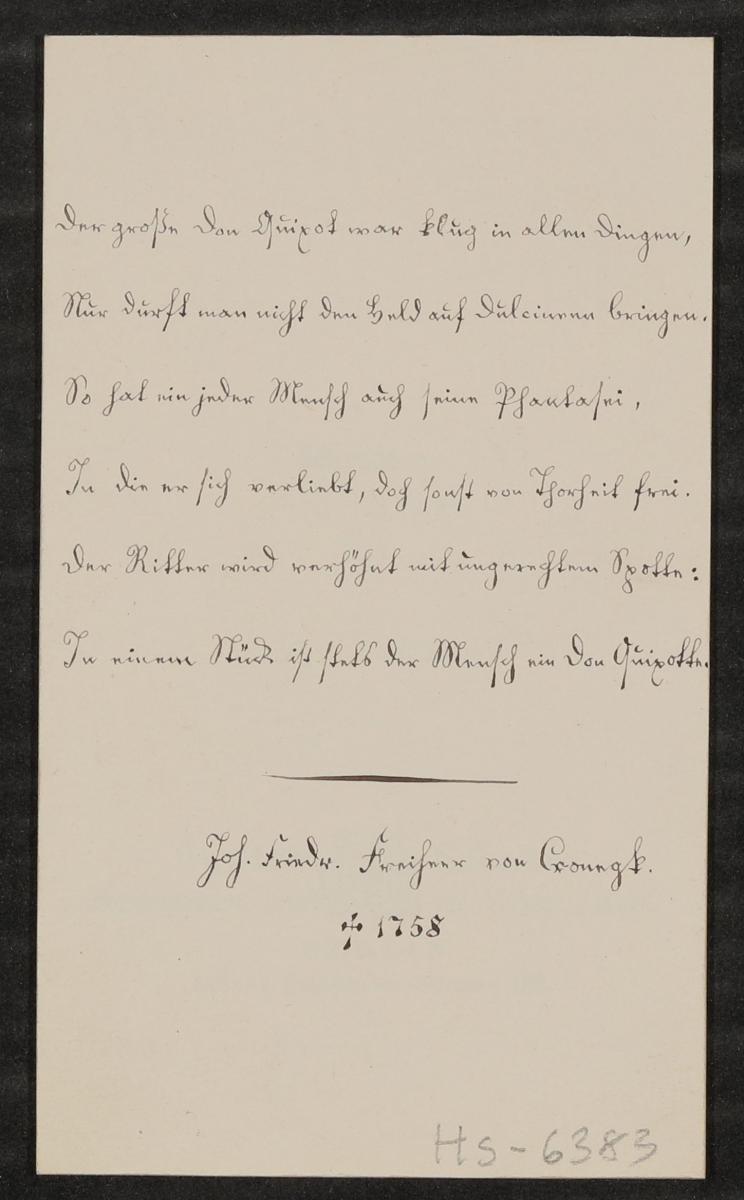 Der große Don Quixot war klug in allen Dingen,
Nur durft man nicht den Held auf Dulcineen bringen.
So hat ein jeder Mensch auch seine Phantasei,
In die er sich verliebt, doch sonst von Thorheit frei.
Der Ritter wird verhöhnt mit ungerechtem Spotte:
In einem Stück ist stets der Mensch ein Don Quixotte.
Joh. Friedr. Freiherr von Cronegk.
✝ 1758
Hs-6383